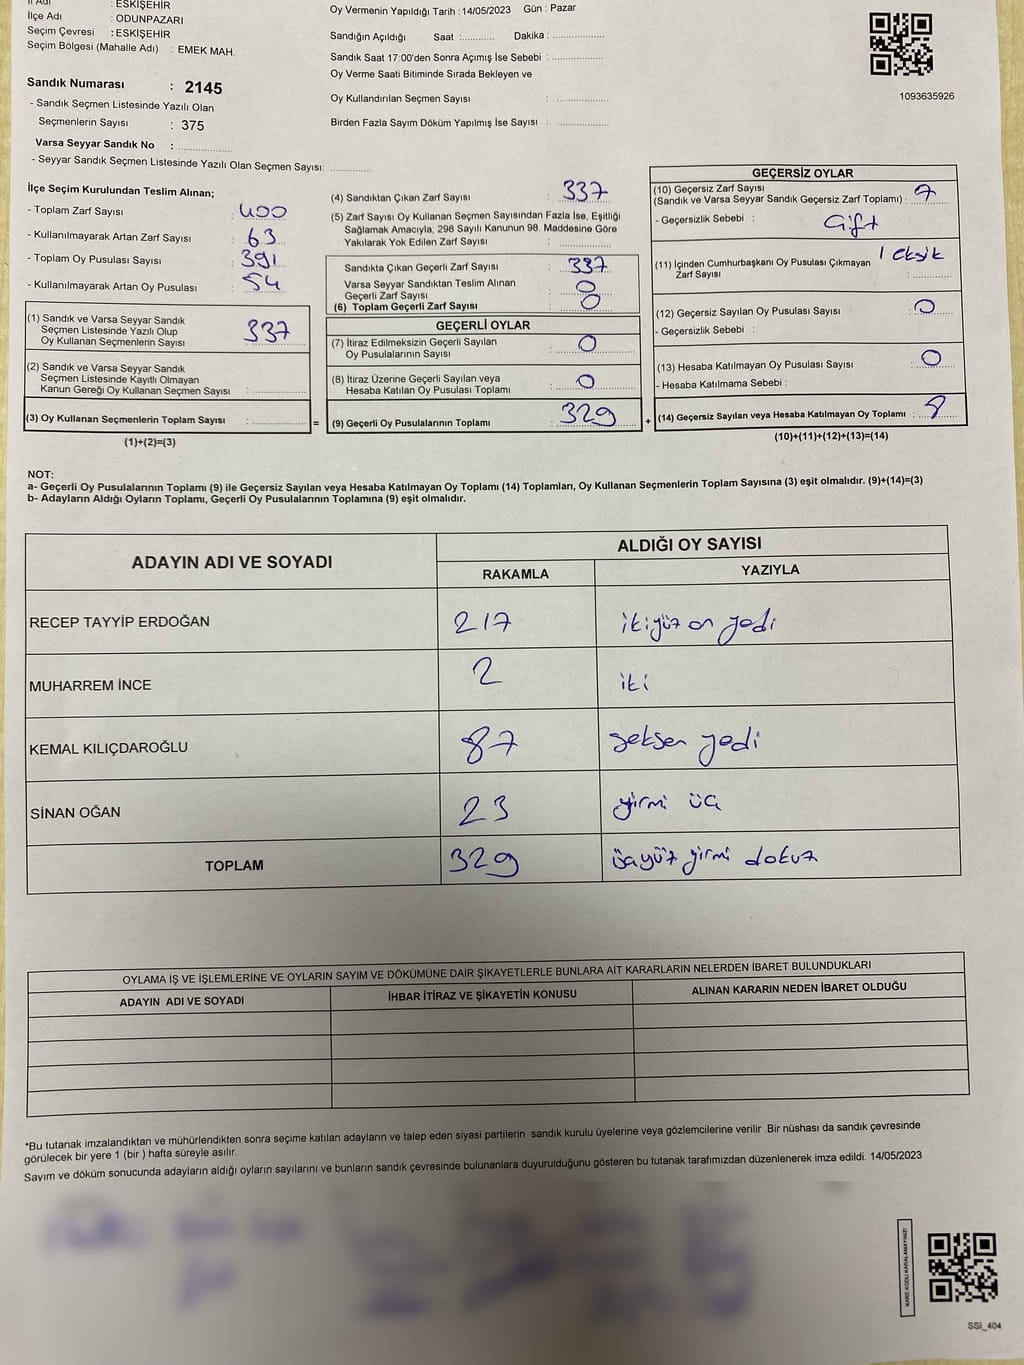 İl Adı : ESKİŞEHİR
İlçe Adı : ODUNPAZARI
Seçim Çevresi : ESKİŞEHİR
Seçim Bölgesi (Mahalle Adı) : EMEK MAH.
Sandık Numarası : 2145
- Sandık Seçmen Listesinde Yazılı Olan
Seçmenlerin Sayısı : 375
Varsa Seyyar Sandık No :
- Seyyar Sandık Seçmen Listesinde Yazılı Olan Seçmen Sayısı:
Oy Vermenin Yapıldığı Tarih : 14/05/2023 Gün : Pazar
Sandığın Açıldığı Saat : Dakika :
Sandık Saat 17:00'den Sonra Açımış İse Sebebi :
Oy Verme Saati Bitiminde Sırada Bekleyen ve
Oy Kullandırılan Seçmen Sayısı :
Birden Fazla Sayım Döküm Yapılmış İse Sayısı :
1093635926
İlçe Seçim Kurulundan Teslim Alınan;
- Toplam Zarf Sayısı : 400
- Kullanılmayarak Artan Zarf Sayısı : 63
- Toplam Oy Pusulası Sayısı : 391
- Kullanılmayarak Artan Oy Pusulası : 54
(1) Sandık ve Varsa Seyyar Sandık
Seçmen Listesinde Yazılı Olup
Oy Kullanan Seçmenlerin Sayısı 337
(2) Sandık ve Varsa Seyyar Sandık
Seçmen Listesinde Kayıtlı Olmayan
Kanun Gereği Oy Kullanan Seçmen Sayısı :
(3) Oy Kullanan Seçmenlerin Toplam Sayısı : =
(1)+(2)=(3)
(4) Sandıktan Çıkan Zarf Sayısı : 337
(5) Zarf Sayısı Oy Kullanan Seçmen Sayısından Fazla İse, Eşitliği
Sağlamak Amacıyla; 298 Sayılı Kanunun 98. Maddesine Göre
Yakılarak Yok Edilen Zarf Sayısı :
Sandıkta Çıkan Geçerli Zarf Sayısı : 337
Varsa Seyyar Sandıktan Teslim Alınan
Geçerli Zarf Sayısı : 0
(6) Toplam Geçerli Zarf Sayısı : 0
GEÇERLİ OYLAR
(7) İtiraz Edilmeksizin Geçerli Sayılan
Oy Pusulalarının Sayısı : 0
(8) İtiraz Üzerine Geçerli Sayılan veya
Hesaba Katılan Oy Pusulası Toplamı : 0
(9) Geçerli Oy Pusulalarının Toplamı : 329 +
GEÇERSİZ OYLAR
(10) Geçersiz Zarf Sayısı
(Sandık ve Varsa Seyyar Sandık Geçersiz Zarf Toplamı) : 7
- Geçersizlik Sebebi : Çift
1 eksik
(11) İçinden Cumhurbaşkanı Oy Pusulası Çıkmayan
Zarf Sayısı :
(12) Geçersiz Sayılan Oy Pusulası Sayısı : 0
- Geçersizlik Sebebi :
(13) Hesaba Katılmayan Oy Pusulası Sayısı : 0
- Hesaba Katılmama Sebebi :
(14) Geçersiz Sayılan veya Hesaba Katılmayan Oy Toplamı : 8
(10)+(11)+(12)+(13)=(14)
NOT:
a- Geçerli Oy Pusulalarının Toplamı (9) ile Geçersiz Sayılan veya Hesaba Katılmayan Oy Toplamı (14) Toplamları, Oy Kullanan Seçmenlerin Toplam Sayısına (3) eşit olmalıdır. (9)+(14)=(3)
b- Adayların Aldığı Oyların Toplamı, Geçerli Oy Pusulalarının Toplamına (9) eşit olmalıdır.
ADAYIN ADI VE SOYADI ALDIĞI OY SAYISI
RAKAMLA YAZIYLA
RECEP TAYYİP ERDOĞAN 217 ikiyüz on yedi
MUHARREM İNCE 2 iki
KEMAL KILIÇDAROĞLU 87 seksen yedi
SİNAN OĞAN 23 yirmi üç
TOPLAM 329 üçyüz yirmi dokuz
OYLAMA İŞ VE İŞLEMLERİNE VE OYLARIN SAYIM VE DÖKÜMÜNE DAİR ŞİKAYETLERLE BUNLARA AİT KARARLARIN NELERDEN İBARET BULUNDUKLARI
ADAYIN ADI VE SOYADI İHBAR İTİRAZ VE ŞİKAYETİN KONUSU ALINAN KARARIN NEDEN İBARET OLDUĞU
*Bu tutanak imzalandıktan ve mühürlendikten sonra seçime katılan adayların ve talep eden siyasi partilerin sandık kurulu üyelerine veya gözlemcilerine verilir .Bir nüshası da sandık çevresinde
görülecek bir yere 1 (bir ) hafta süreyle asılır.
Sayım ve döküm sonucunda adayların aldığı oyların sayılarını ve bunların sandık çevresinde bulunanlara duyurulduğunu gösteren bu tutanak tarafımızdan düzenlenerek imza edildi. 14/05/2023
KARE KODU KARALAMAYINIZ!
SSİ_404